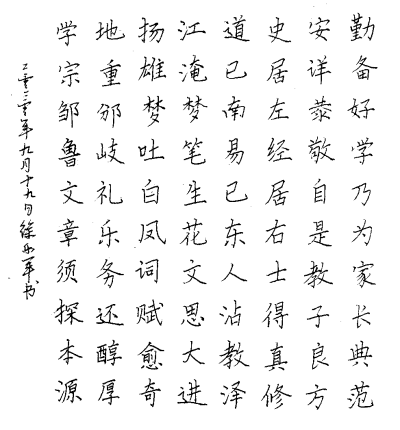 勤备好学乃为家长典范
安详恭敬自是教子良方
史居左经居右士得真修
道已南易已东人沾教泽
江淹梦笔生花文思大进
扬雄梦吐白凤词赋愈奇
地重邠岐礼乐务还醇厚
学宗邹鲁文章须探本源
二零二零年九月十九日徐军书